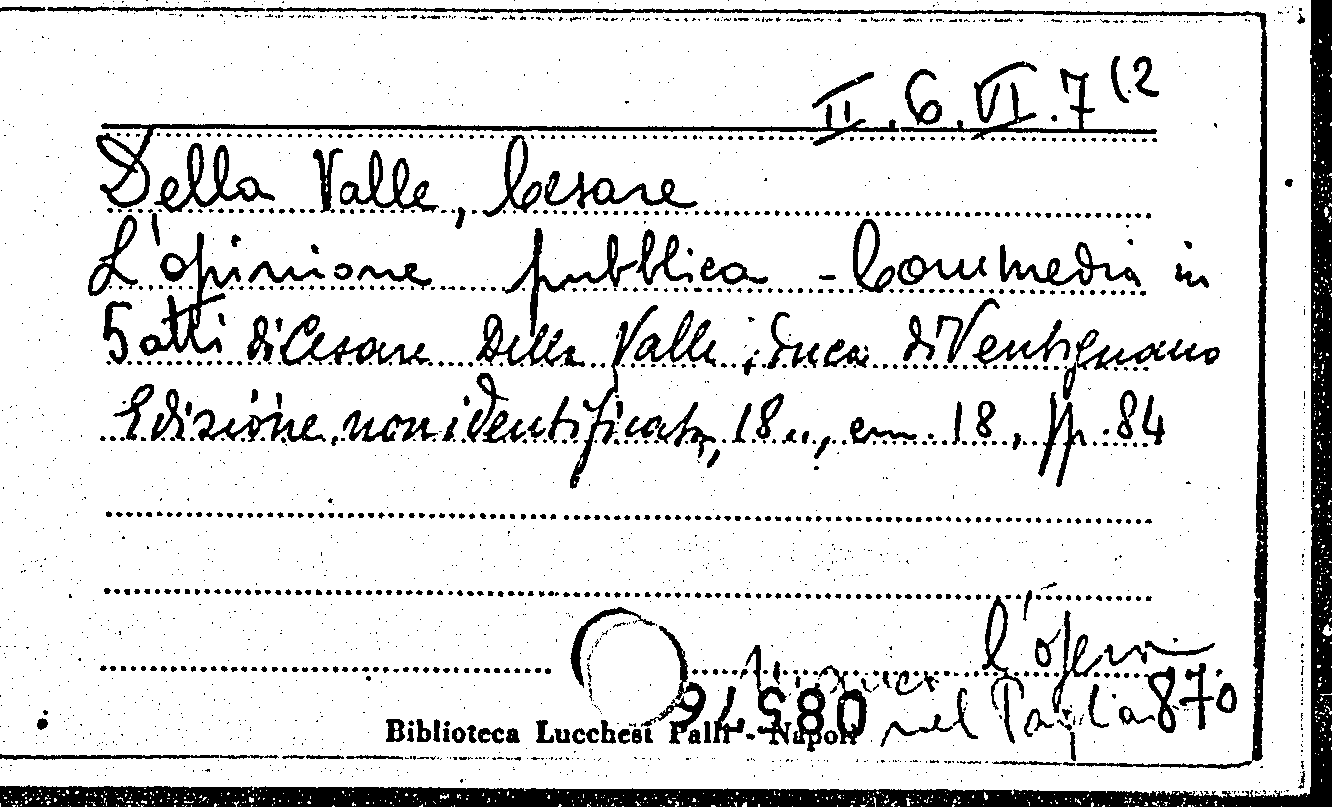 II.6.VI.7(2
Della Valle, Cesare
L'opinione pubblica - Commedia in
5 atti di Cesare Della Valle, duca di Ventignano
Edizione non identificata, 18.., cm. 18, pp. 84
l'opera
Manca
nel Paglia 870
Biblioteca Lucchesi Palli - Napoli